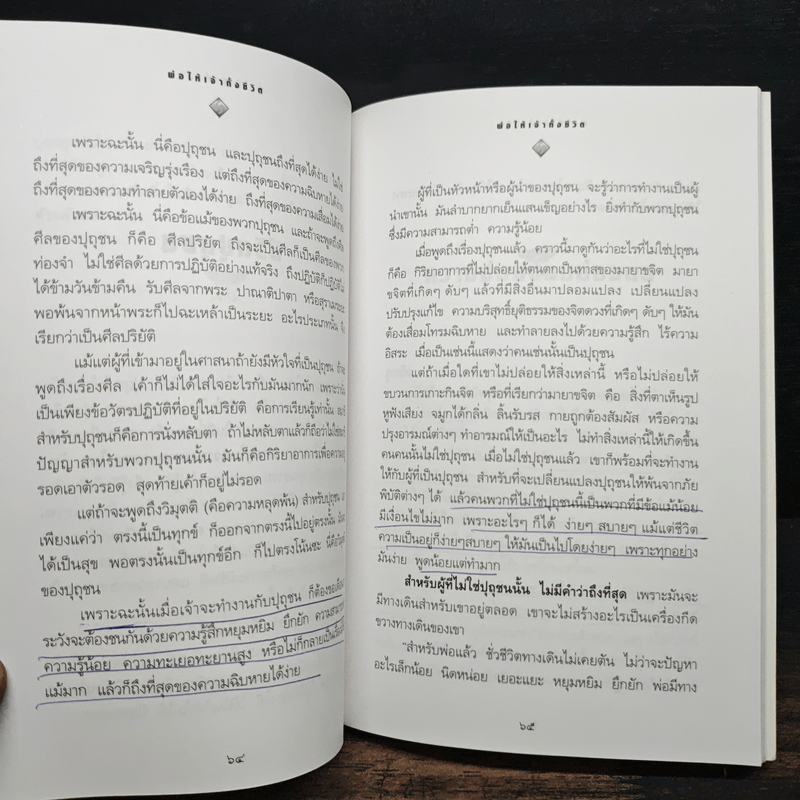 พ่อให้เจ้าทั้งชีวิต
เพราะฉะนั้น นี่คือปุถุชน และปุถุชนถึงที่สุดได้ง่าย ไม่ใช่
ถึงที่สุดของความเจริญรุ่งเรือง แต่ถึงที่สุดของความฉิบหายได้ง่าย
ถึงที่สุดของความทำลายตัวเองได้ง่าย ถึงที่สุดของความเสื่อมได้ง่าย
เพราะฉะนั้น นี่คือข้อแม้ของพวกปุถุชน และถ้าจะพูดถึง
ศีลของปุถุชน ก็คือ ศีลปริยัต ถึงจะเป็นศีลก็เป็นศีลของพวก
ท่องจำ ไม่ใช่ศีลด้วยการปฏิบัติอย่างแท้จริง ถึงปฏิบัติก็ปฏิบัติ
ได้ข้ามวันข้ามคืน รับศีลจากพระ ปาณาติปาตา หรือสุราเมระยะ
พอพ้นจากหน้าพระก็ไปฉะเหล้าเป็นระยะ อะไรประเภทนั้น
เรียกว่าเป็นศีลปริยัติ
แม้แต่ผู้ที่เข้ามาอยู่ในศาสนาถ้ายังมีหัวใจที่เป็นปุถุชน ถ้าจะ
พูดถึงเรื่องศีล เค้าก็ไม่ได้ใส่ใจอะไรกับมันมากนัก เพราะว่า
เป็นเพียงข้อวัตรปฏิบัติที่อยู่ในปริยัติ คือการเรียนรู้เท่านั้น
สำหรับปุถุชนก็คือการนั่งหลับตา ถ้าไม่หลับตาแล้วก็ถือว่าไม่ใช่
ปัญญาสำหรับพวกปุถุชนนั้น มันก็คือกิริยาอาการเพื่อความอยู่
รอดเอาตัวรอด สุดท้ายเค้าก็อยู่ไม่รอด
แต่ถ้าจะพูดถึงวิมุตติ (คือความหลุดพ้น) สำหรับปุถุชน
เพียงแค่ว่า ตรงนี้เป็นทุกข์ ก็ออกจากตรงนี้ไปอยู่ตรงนั้น
ได้เป็นสุข พอตรงนั้นเป็นทุกข์อีก ก็ไปตรงโน้นซะ นี่คือวิมุตติ
ของปุถุชน
เพราะฉะนั้นเมื่อเจ้าจะทำงานกับปุถุชน ก็ต้องขอเตือน
ระวังจะต้องชนกันด้วยความรู้สึกหยุมหยิม ยึกยัก ความสามารถ
ความรู้น้อย ความทะเยอทะยานสูง หรือไม่ก็กลายเป็น
แม้มาก แล้วก็ถึงที่สุดของความฉิบหายได้ง่าย
๖๔
พ่อให้เจ้าทั้งชีวิต
ผู้ที่เป็นหัวหน้าหรือผู้นำของปุถุชน จะรู้ว่าการทำงานเป็นผู้
นำเขานั้น มันลำบากยากเย็นแสนเข็ญอย่างไร ยิ่งทำกับพวกปุถุชน
ซึ่งมีความสามารถต่ำ ความรู้น้อย
เมื่อพูดถึงเรื่องปุถุชนแล้ว คราวนี้มาดูกันว่าอะไรที่ไม่ใช่ปุถุชน
ก็คือ กิริยาอาการที่ไม่ปล่อยให้ตนตกเป็นทาสของมายาขจิต มายา
ขจิตที่เกิดๆ ดับๆ แล้วที่มีสิ่งอื่นมาปลอมแปลง เปลี่ยนแปลง
ปรับปรุงแก้ไข ความบริสุทธิ์ยุติธรรมของจิตดวงที่เกิดๆ ดับๆ ให้มัน
ต้องเสื่อมโทรมฉิบหาย และทำลายลงไปด้วยความรู้สึก ไร้ความ
อิสระ เมื่อเป็นเช่นนี้แสดงว่าคนเช่นนั้นเป็นปุถุชน
แต่ถ้าเมื่อใดที่เขาไม่ปล่อยให้สิ่งเหล่านี้ หรือไม่ปล่อยให้
ขบวนการเกาะกินจิต หรือที่เรียกว่ามายาขจิต คือ สิ่งที่ตาเห็นรูป
หูฟังเสียง จมูกได้กลิ่น ลิ้นรับรส กายถูกต้องสัมผัส หรือความ
ปรุงอารมณ์ต่างๆ ทำอารมณ์ให้เป็นอะไร ไม่ทำสิ่งเหล่านี้ให้เกิดขึ้น
คนคนนั้นไม่ใช่ปุถุชน เมื่อไม่ใช่ปุถุชนแล้ว เขาก็พร้อมที่จะทำงาน
ให้กับผู้ที่เป็นปุถุชน สำหรับที่จะเปลี่ยนแปลงปุถุชนให้พ้นจากภัย
พิบัติต่างๆ ได้ แล้วคนพวกที่ไม่ใช่ปุถุชนนี้เป็นพวกที่มีข้อแม้น้อย
มีเงื่อนไขไม่มาก เพราะอะไรๆ ก็ได้ ง่ายๆ สบายๆ แม้แต่ชีวิต
ความเป็นอยู่ก็ง่ายๆสบายๆ ให้มันเป็นไปโดยง่ายๆ เพราะทุกอย่าง
มันง่าย พูดน้อยแต่ทำมาก
สำหรับผู้ที่ไม่ใช่ปุถุชนนั้น ไม่มีคำว่าถึงที่สุด เพราะมันจะ
มีทางเดินสำหรับเขาอยู่ตลอด เขาจะไม่สร้างอะไรเป็นเครื่องกีด
ขวางทางเดินของเขา
"สำหรับพ่อแล้ว ชั่วชีวิตทางเดินไม่เคยตัน ไม่ว่าจะปัญหา
อะไรเล็กน้อย นิดหน่อย เยอะแยะ หยุมหยิม ยึกยัก พ่อมีทาง
๖๕